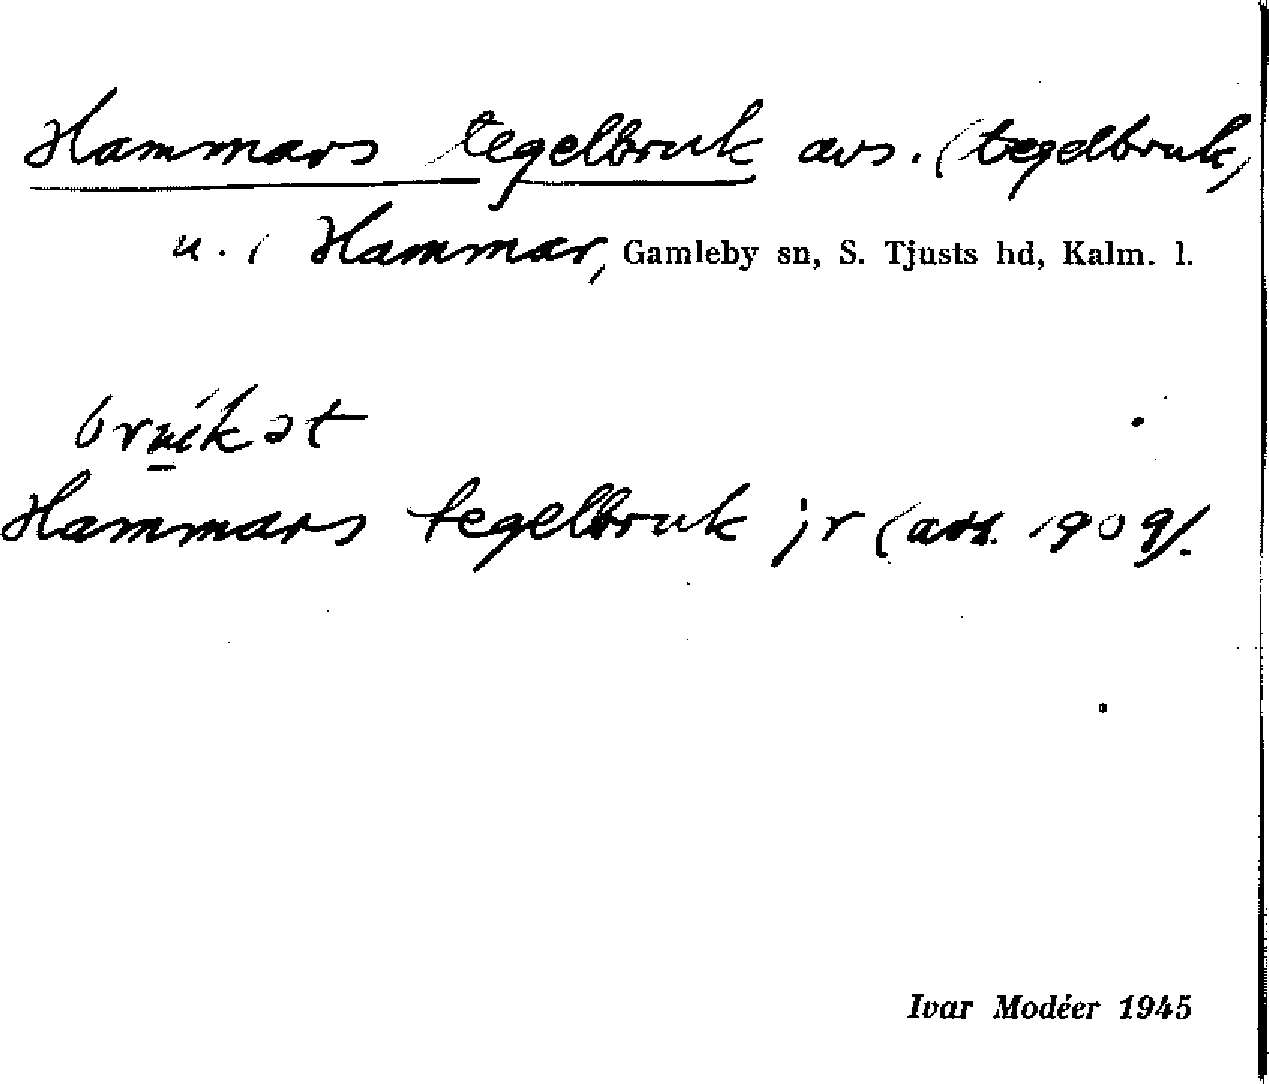 Hammars tegelbruk avs. (tegelbruk,
u. i Hammar, Gamleby sn, S. Tjusts hd, Kalm. l.
bruk ət
Hammars tegelbruk jr (avs. 1909).
Ivar Modéer 1945